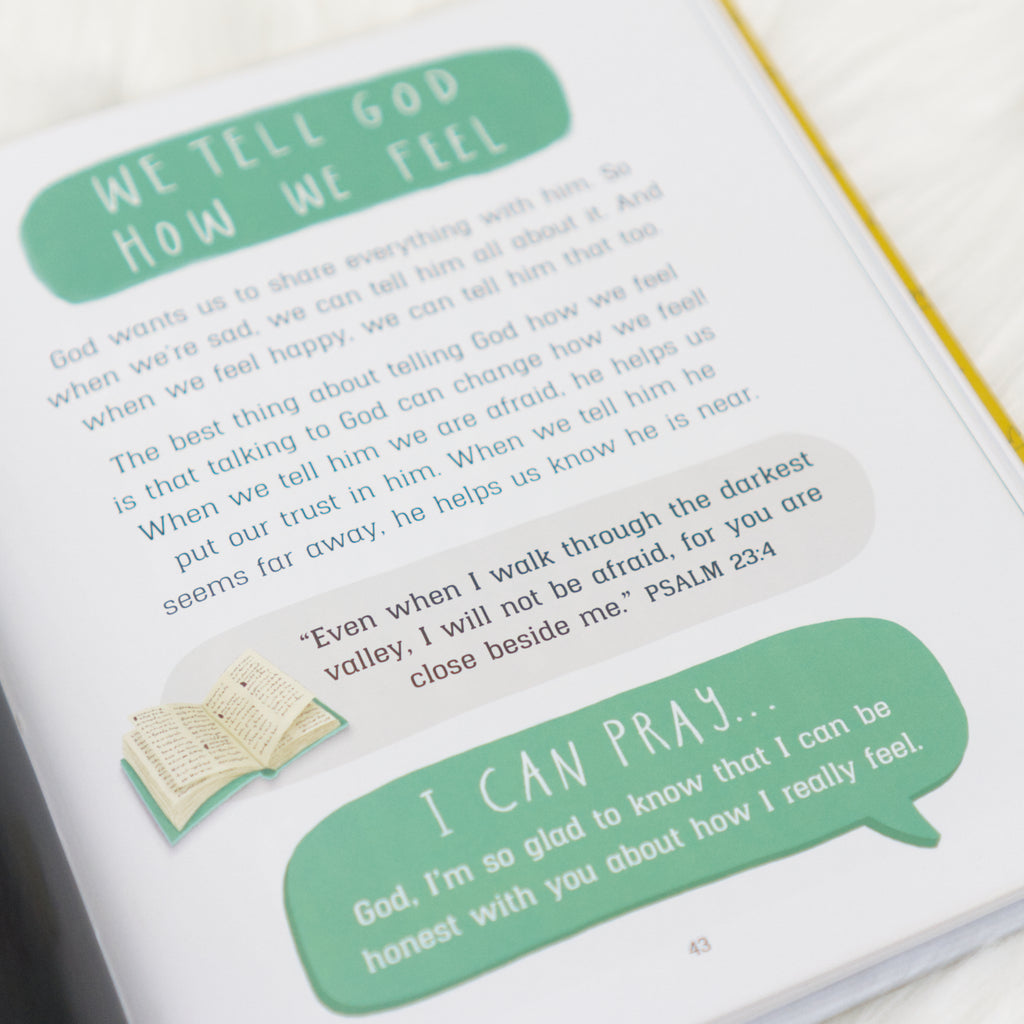 WE TELL GOD
HOW WE FEEL
God wants us to share everything with him. So
when we're sad, we can tell him all about it. And
when we feel happy, we can tell him that too.
The best thing about telling God how we feel
is that talking to God can change how we feel!
When we tell him we are afraid, he helps us
put our trust in him. When we tell him he
seems far away, he helps us know he is near.
“Even when I walk through the darkest
valley, I will not be afraid, for you are
close beside me.” PSALM 23:4
I CAN PRAY...
God, I'm so glad to know that I can be
honest with you about how I really feel.
43